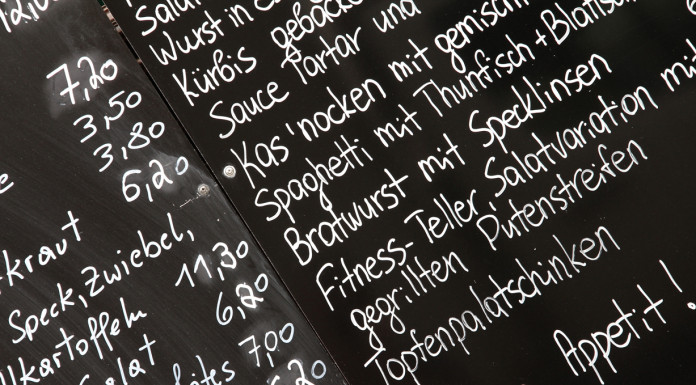 7,20
3,50
3,80
6,20
kraut
Speck, Zwiebel,
11,30
kartoffeln
6,20
7,00
Wurst in
Kürbis gebacke
Sauce Tartar und
Kas'nocken mit gemisch
Spaghetti mit Thunfisch + Blatts
Bratwurst mit Specklinsen
Fitness-Teller, Salatvariation mi
gegrillten Putenstreifen
Topfenpalatschinken
Appetit!